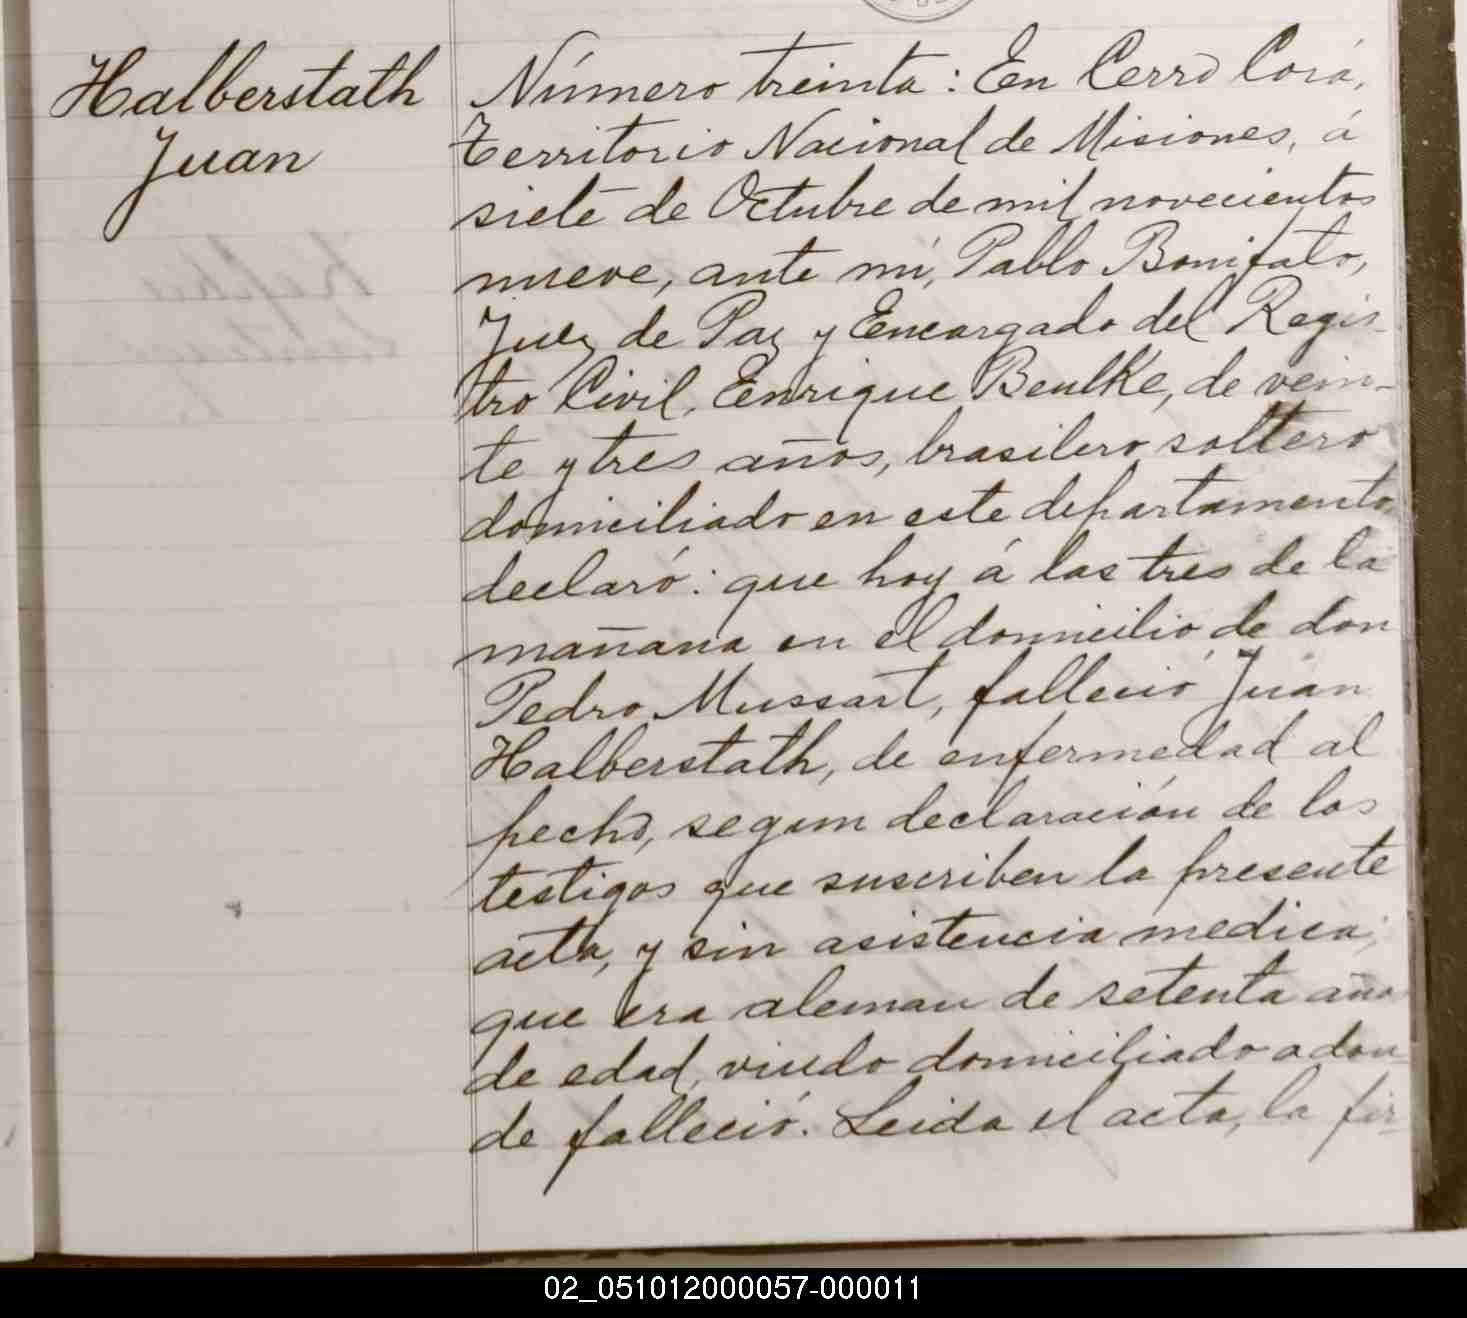 Halberstath
Juan
Número treinta: En Cerro Corá,
Territorio Nacional de Misiones, á
siete de Octubre de mil novecientos
nueve, ante mi, Pablo Bonifato,
Juez de Paz y Encargado del Regis-
tro Civil, Enrique Beulke, de vein-
te y tres años, brasilero soltero
domiciliado en este departamento,
declaró: que hoy á las tres de la
mañana en el domicilio de don
Pedro Mussart, falleció Juan
Halberstath, de enfermedad al
pecho, segun declaración de los
testigos que suscriben la presente
acta, y sin asistencia medica;
que era aleman de setenta año
de edad, viudo domiciliado adon
de falleció. Leida el acta, la fir-
02_051012000057-000011